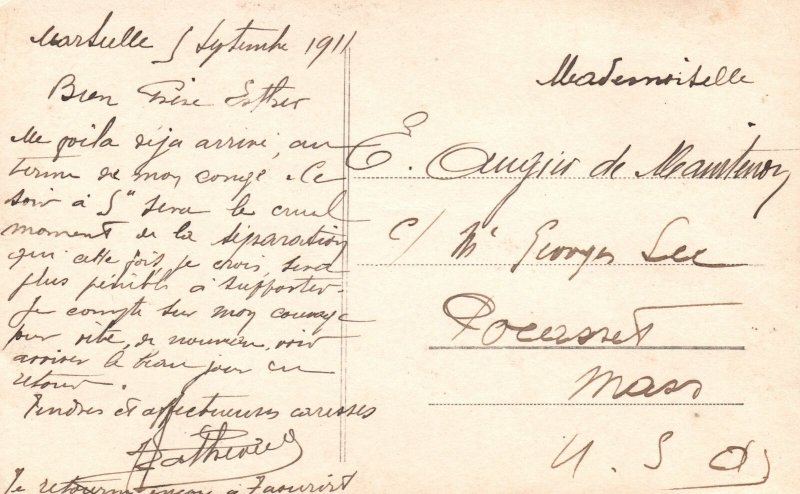 Marseille 5 Septembre 1911
Bien Chère Esther
Me voila déja arrivé, au
terme de mon congé. Ce
soir à 5h sera le cruel
moment de la séparation
qui cette fois, je crois, sera
plus pénible à supporter.
Je compte sur mon courage
pour vite, de nouveau, voir
arriver le beau jour du
retour.
Tendres et affectueuses caresses
Je retourne encore à Taourirt
Mademoiselle
E. Augier de Maintenon
c/ Mr Georges Lee
Pocasset
Mass
U. S. A